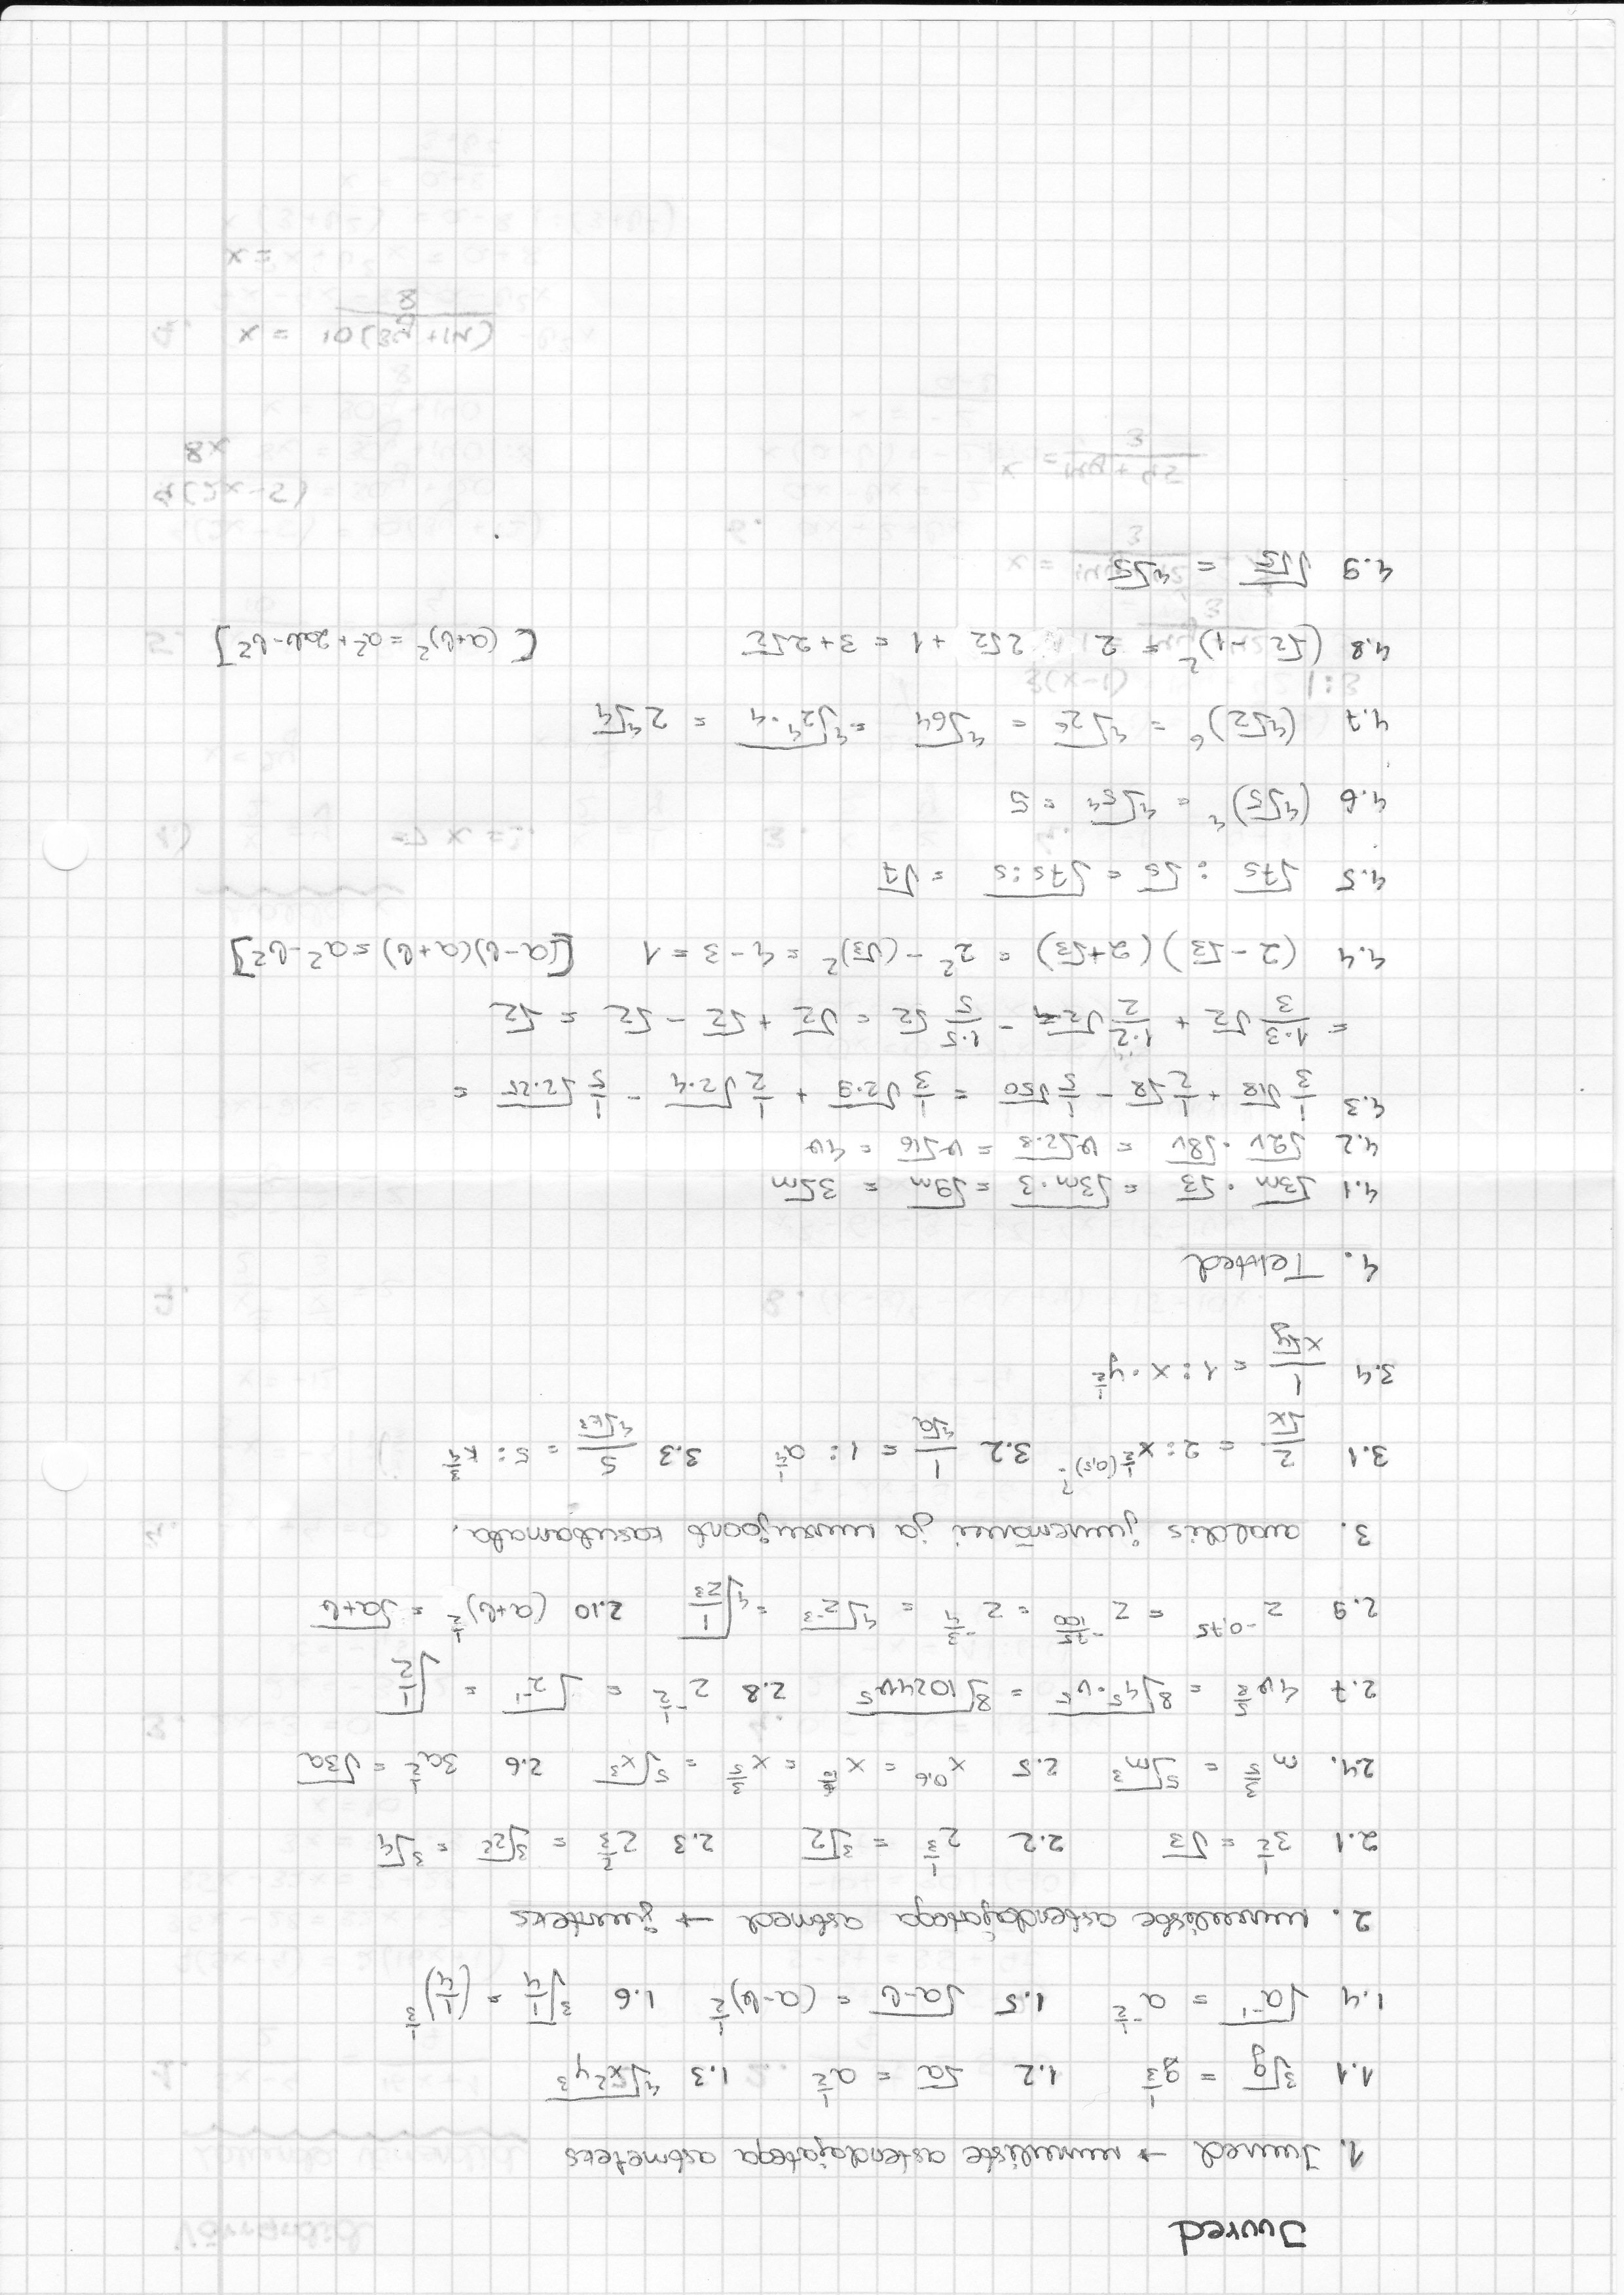 Juured
1. Juured → murruliste astendajatega astmeteks
1.1 ∛g = g^(1/3) 1.2 √a = a^(1/2) 1.3 ∜(x²y³)
1.4 √(a⁻¹) = a^(-1/2) 1.5 √(a-b) = (a-b)^(1/2) 1.6 ∛(1/4) = (1/4)^(1/3)
2. murruliste astendajatega astmed → juurteks
2.1 3^(1/2) = √3 2.2 2^(1/3) = ∛2 2.3 2^(2/3) = ∛(2²) = ∛4
2.4. m^(3/5) = ⁵√(m³) 2.5 x^0,6 = x^(6/10) = x^(3/5) = ⁵√(x³) 2.6 3a^(1/2) = √(3a)
2.7 4v^(5/8) = ⁸√(4⁵·v⁵) = ⁸√(1024v⁵) 2.8 2^(-1/2) = √(2⁻¹) = √(1/2)
2.9 2^(-0,75) = 2^(-75/100) = 2^(-3/4) = ∜(2⁻³) = ∜(1/2³) 2.10 (a+b)^(1/2) = √(a+b)
3. avaldis juuremärki ja murrujoont kasutamata.
3.1 2/√x = 2 : x^(1/2) (0,5)? 3.2 1/∜a = 1 : a^(1/4) 3.3 5/∜(k³) = 5 : k^(3/4)
3.4 1/(x√y) = 1 : x · y^(1/2)
4. Tehted
4.1 √(3m) · √3 = √(3m·3) = √(9m) = 3√m
4.2 √(2v) · √(8v) = v√(2·8) = v√16 = 4v
4.3 1/3 √18 + 1/2 √8 - 1/5 √50 = 1/3 √(2·9) + 1/2 √(2·4) - 1/5 √(2·25) =
= (1·3)/3 √2 + (1·2)/2 √2 - (1·5)/5 √2 = √2 + √2 - √2 = √2
4.4 (2-√3)(2+√3) = 2² - (√3)² = 4 - 3 = 1 [(a-b)(a+b) = a²-b²]
4.5 √(7s) : √s = √(7s:s) = √7
4.6 (∜5)⁴ = ∜(5⁴) = 5
4.7 (∜2)⁶ = ∜(2⁶) = ∜64 = ∜(2⁴·4) = 2∜4
4.8 (√2-1)² = 2 2√2 + 1 = 3+2√2 [(a+b)² = a²+2ab-b²]
4.9 √√5 = ∜5